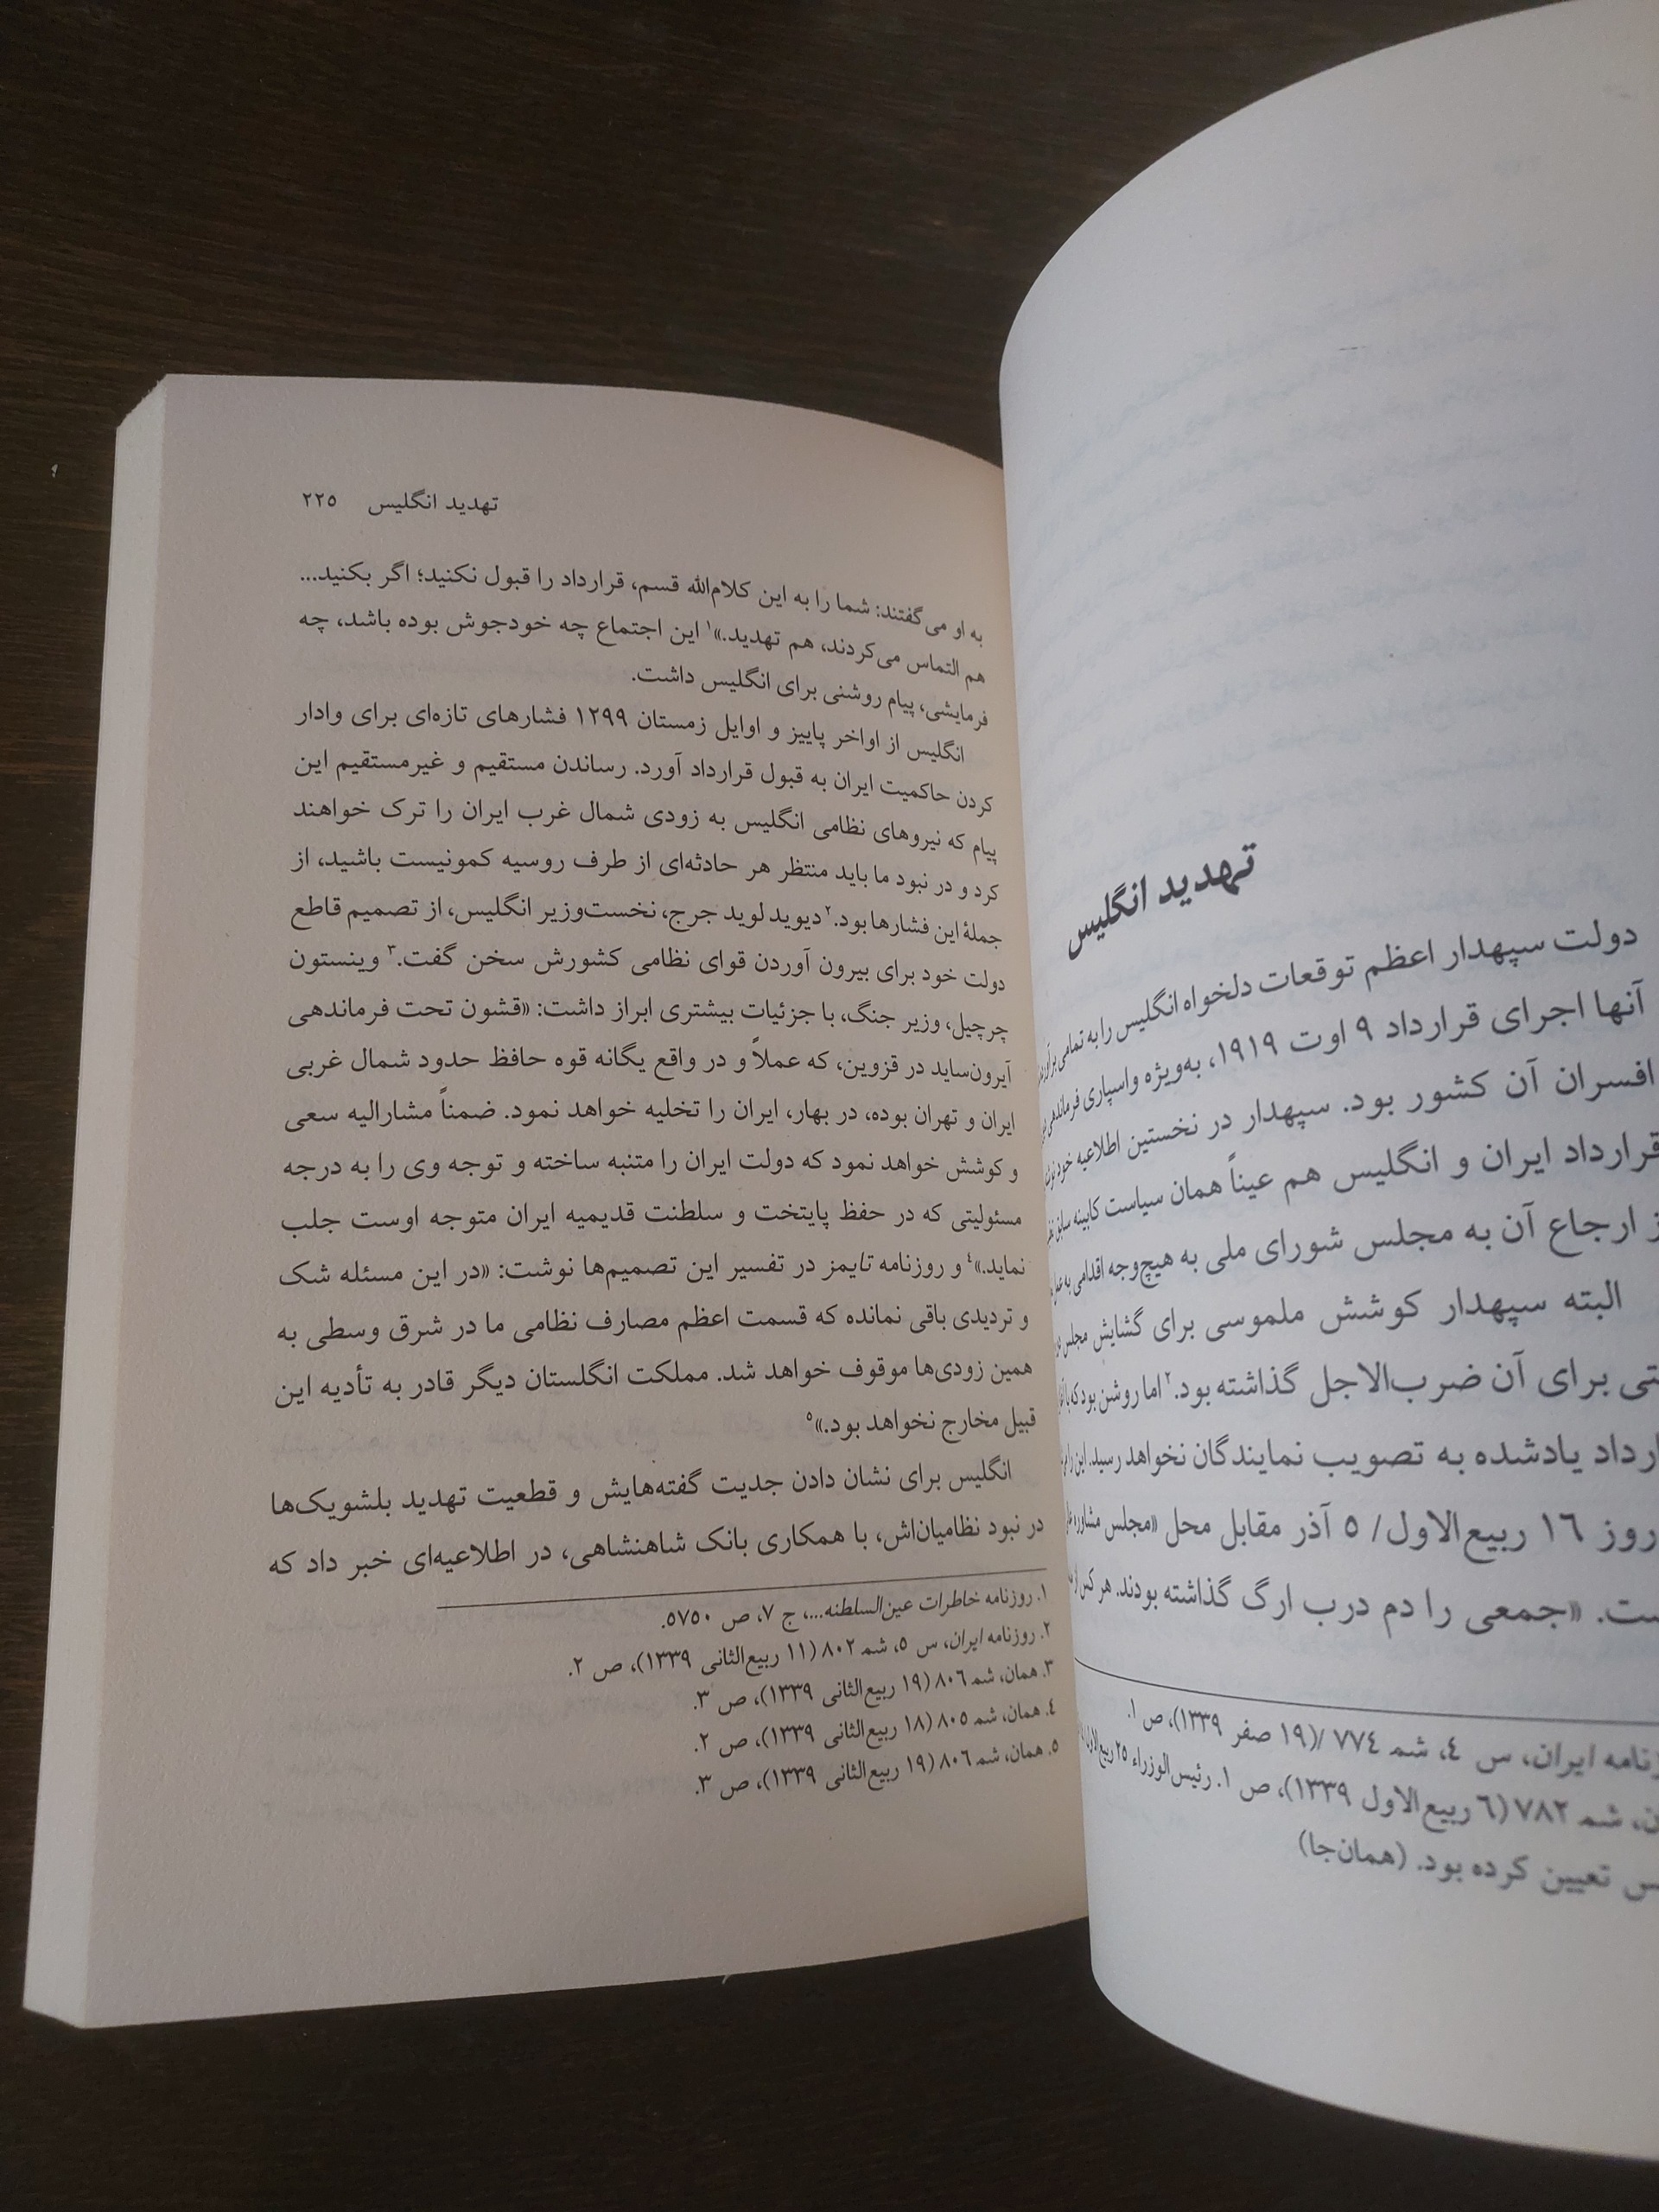 تهدید انگلیس
دولت سپهدار اعظم توقعات دلخواه انگلیس را به تمامی
آنها اجرای قرارداد ۹ اوت ۱۹۱۹، به‌ویژه واسپاری فرماندهی
افسران آن کشور بود. سپهدار در نخستین اطلاعیه خود
قرارداد ایران و انگلیس هم عیناً همان سیاست کابینه سابق
ارجاع آن به مجلس شورای ملی به هیچ‌وجه اقدامی به
البته سپهدار کوشش ملموسی برای گشایش مجلس
برای آن ضرب‌الاجل گذاشته بود.۲ اما روشن بود که
یادشده به تصویب نمایندگان نخواهد رسید.
روز ۱۶ ربیع‌الاول/ ۵ آذر مقابل محل «مجلس مشاوره
«جمعی را دم درب ارگ گذاشته بودند. هر کس از
ایران، س ۴، شمـ ۷۷۴ /(۱۹ صفر ۱۳۳۹)، ص ۱.
شمـ ۷۸۲ (۶ ربیع‌الاول ۱۳۳۹)، ص ۱. رئیس‌الوزراء ۲۵
تعیین کرده بود. (همان‌جا)
تهدید انگلیس ۲۲۵
به او می‌گفتند: شما را به این کلام‌الله قسم، قرارداد را قبول نکنید؛ اگر بکنید...
هم التماس می‌کردند، هم تهدید.»۱ این اجتماع چه خودجوش بوده باشد، چه
فرمایشی، پیام روشنی برای انگلیس داشت.
انگلیس از اواخر پاییز و اوایل زمستان ۱۲۹۹ فشارهای تازه‌ای برای وادار
کردن حاکمیت ایران به قبول قرارداد آورد. رساندن مستقیم و غیرمستقیم این
پیام که نیروهای نظامی انگلیس به زودی شمال غرب ایران را ترک خواهند
کرد و در نبود ما باید منتظر هر حادثه‌ای از طرف روسیه کمونیست باشید، از
جملهٔ این فشارها بود.۲ دیوید لوید جرج، نخست‌وزیر انگلیس، از تصمیم قاطع
دولت خود برای بیرون آوردن قوای نظامی کشورش سخن گفت.۳ وینستون
چرچیل، وزیر جنگ، با جزئیات بیشتری ابراز داشت: «قشون تحت فرماندهی
آیرون‌ساید در قزوین، که عملاً و در واقع یگانه قوه حافظ حدود شمال غربی
ایران و تهران بوده، در بهار، ایران را تخلیه خواهد نمود. ضمناً مشارالیه سعی
و کوشش خواهد نمود که دولت ایران را متنبه ساخته و توجه وی را به درجه
مسئولیتی که در حفظ پایتخت و سلطنت قدیمیه ایران متوجه اوست جلب
نماید.»۴ و روزنامه تایمز در تفسیر این تصمیم‌ها نوشت: «در این مسئله شک
و تردیدی باقی نمانده که قسمت اعظم مصارف نظامی ما در شرق وسطی به
همین زودی‌ها موقوف خواهد شد. مملکت انگلستان دیگر قادر به تأدیه این
قبیل مخارج نخواهد بود.»۵
انگلیس برای نشان دادن جدیت گفته‌هایش و قطعیت تهدید بلشویک‌ها
در نبود نظامیان‌اش، با همکاری بانک شاهنشاهی، در اطلاعیه‌ای خبر داد که
۱. روزنامه خاطرات عین‌السلطنه...، ج ۷، ص ۵۷۵۰.
۲. روزنامه ایران، س ۵، شمـ ۸۰۲ (۱۱ ربیع‌الثانی ۱۳۳۹)، ص ۲.
۳. همان، شمـ ۸۰۶ (۱۹ ربیع‌الثانی ۱۳۳۹)، ص ۳.
۴. همان، شمـ ۸۰۵ (۱۸ ربیع‌الثانی ۱۳۳۹)، ص ۲.
۵. همان، شمـ ۸۰۶ (۱۹ ربیع‌الثانی ۱۳۳۹)، ص ۳.